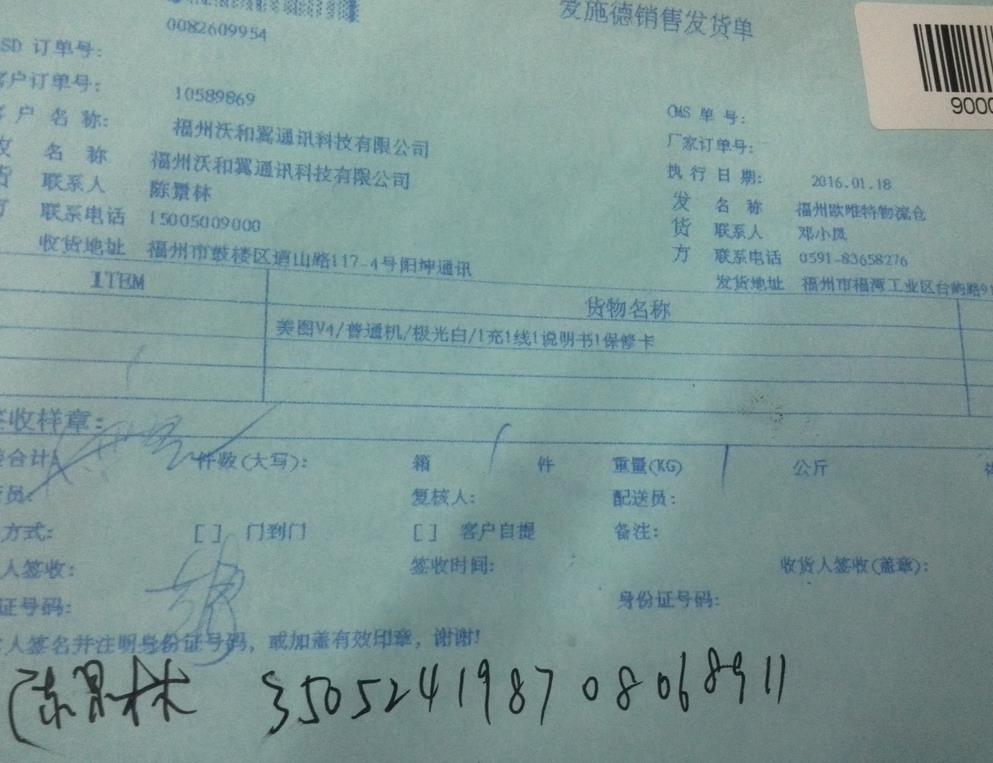 爱施德销售发货单
0082609954
SD 订单号:
客户订单号: 10589869
客户名称: 福州沃和翼通讯科技有限公司
收 名 称 福州沃和翼通讯科技有限公司
货 联系人 陈景林
方 联系电话 15005009000
收货地址 福州市鼓楼区道山路117-4号阳坤通讯
9000
OMS 单 号:
厂家订单号:
执 行 日 期: 2016.01.18
发 名 称 福州欧唯特物流仓
货 联系人 邓小凤
方 联系电话 0591-83658276
发货地址 福州市福湾工业区台屿路
ITEM 货物名称
美图V4/普通机/极光白/1充1线1说明书1保修卡
签收样章:
合计 件数(大写): 箱 1 件 重量(KG) 1 公斤
员: 复核人: 配送员:
方式: [ ] 门到门 [ ] 客户自提 备注:
人签收: 签收时间: 收货人签收(盖章):
证号码: 身份证号码:
人签名并注明身份证号码，或加盖有效印章，谢谢!
陈景林 350524198708068911